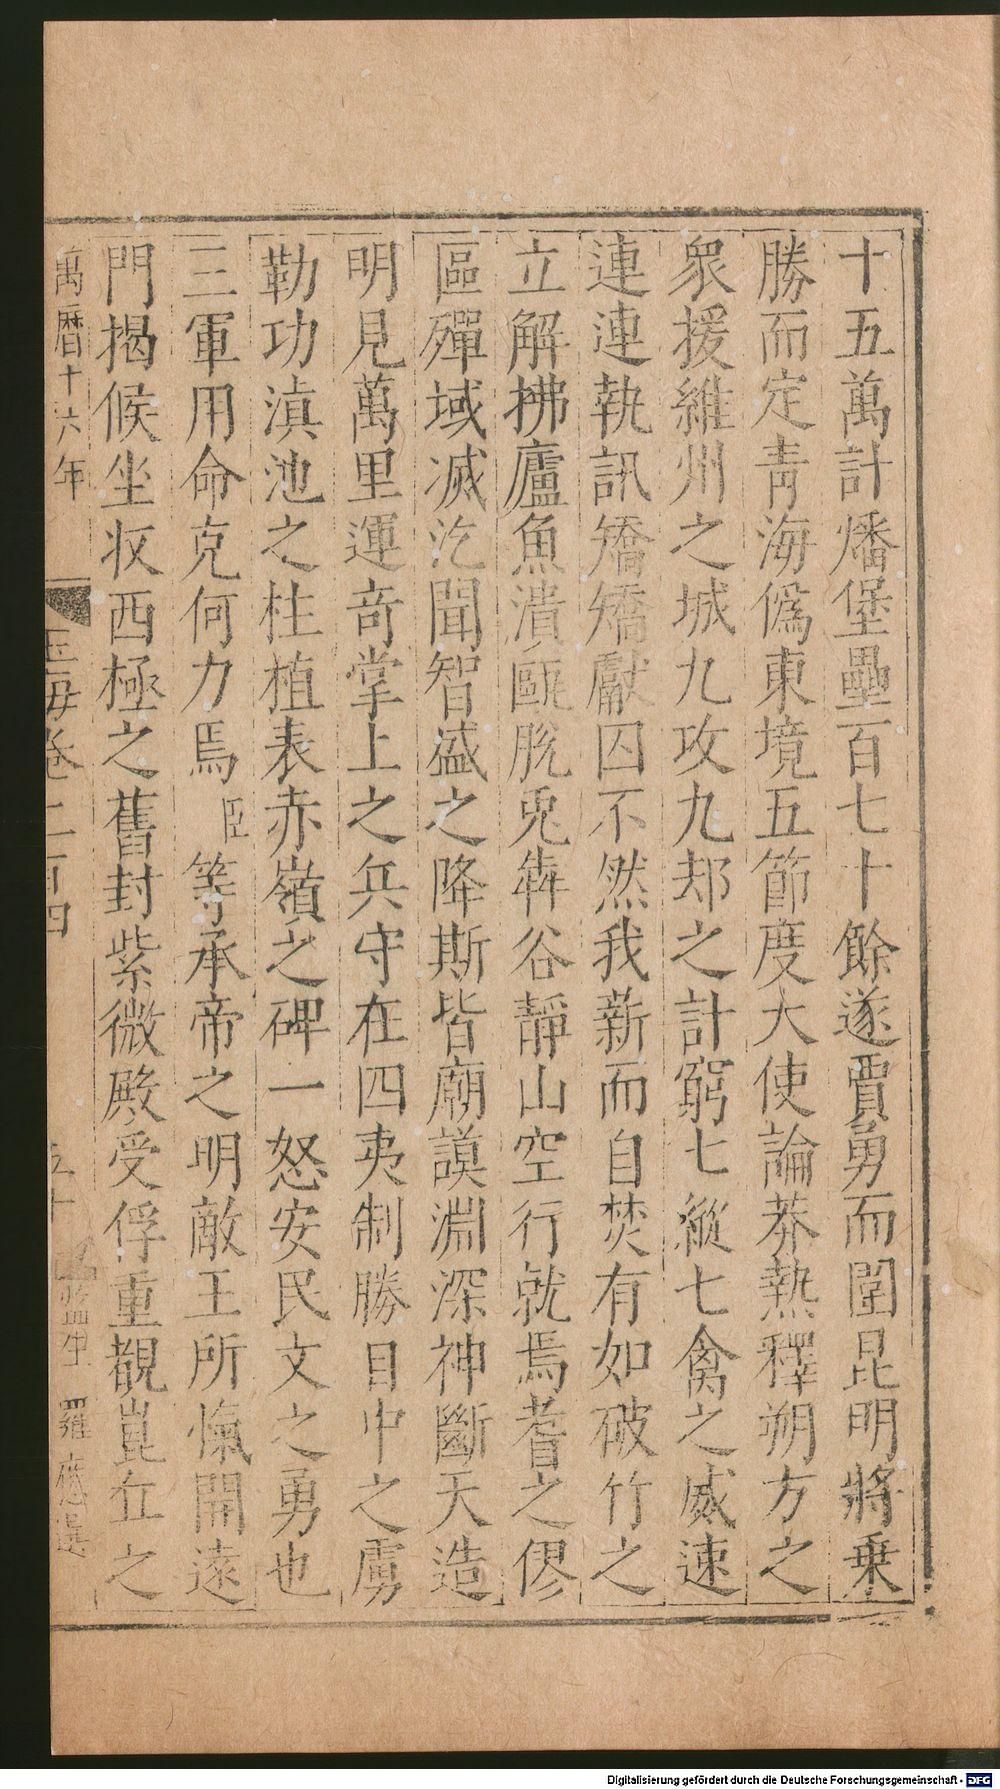 十五萬計燔堡壘百七十餘遂賈勇而圍昆明將乗
勝而定青海僞東境五節度大使論莽熱釋朔方之
衆援維州之城九攻九却之計窮七縱七禽之威速
連連執訊矯矯獻囚不然我薪而自焚有如破竹之
立解拂廬魚潰甌脫兎犇谷靜山空行就焉耆之僇
區殫域滅汔聞智盛之降斯皆廟謨淵深神斷天造
明見萬里運竒掌上之兵守在四夷制勝目中之虜
勒功滇池之柱植表赤嶺之碑一怒安民文之勇也
三軍用命克何力焉臣等承帝之明敵王所愾開遠
門揭候坐収西極之舊封紫微殿受俘重覩崑丘之
萬曆十六年
玉海卷二百四
五十
監生 羅應選
Digitalisierung gefördert durch die Deutsche Forschungsgemeinschaft - DFG